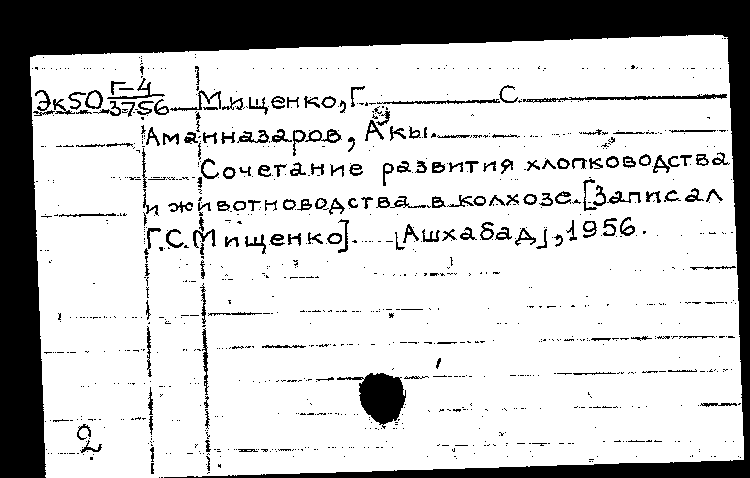 Эк50 Г-4/3756 Мищенко, Г С
Аманназаров, Акы.
Сочетание развития хлопководства
и животноводства в колхозе. [Записал
Г.С. Мищенко]. [Ашхабад], 1956.
2